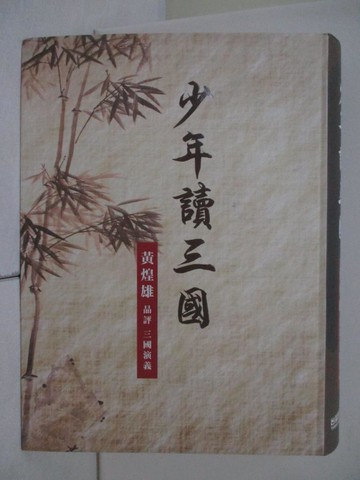 少年讀三國
黃煌雄 品評 三國演義